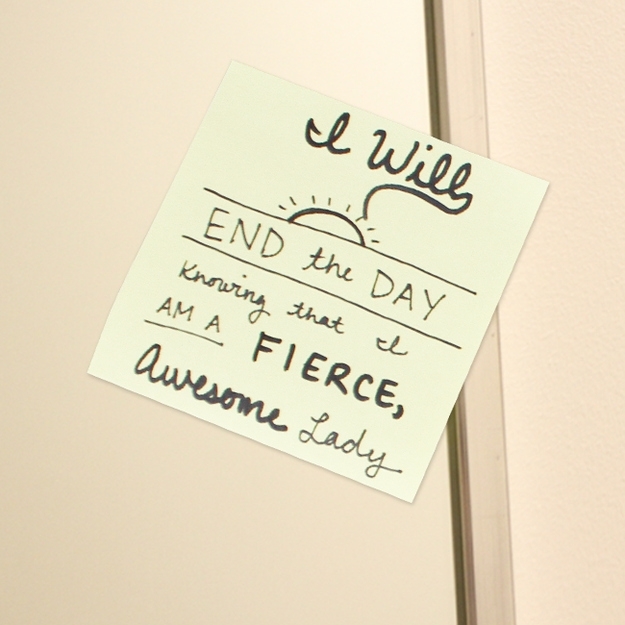 I Will
END the DAY
Knowing that I
AM A FIERCE,
Awesome Lady